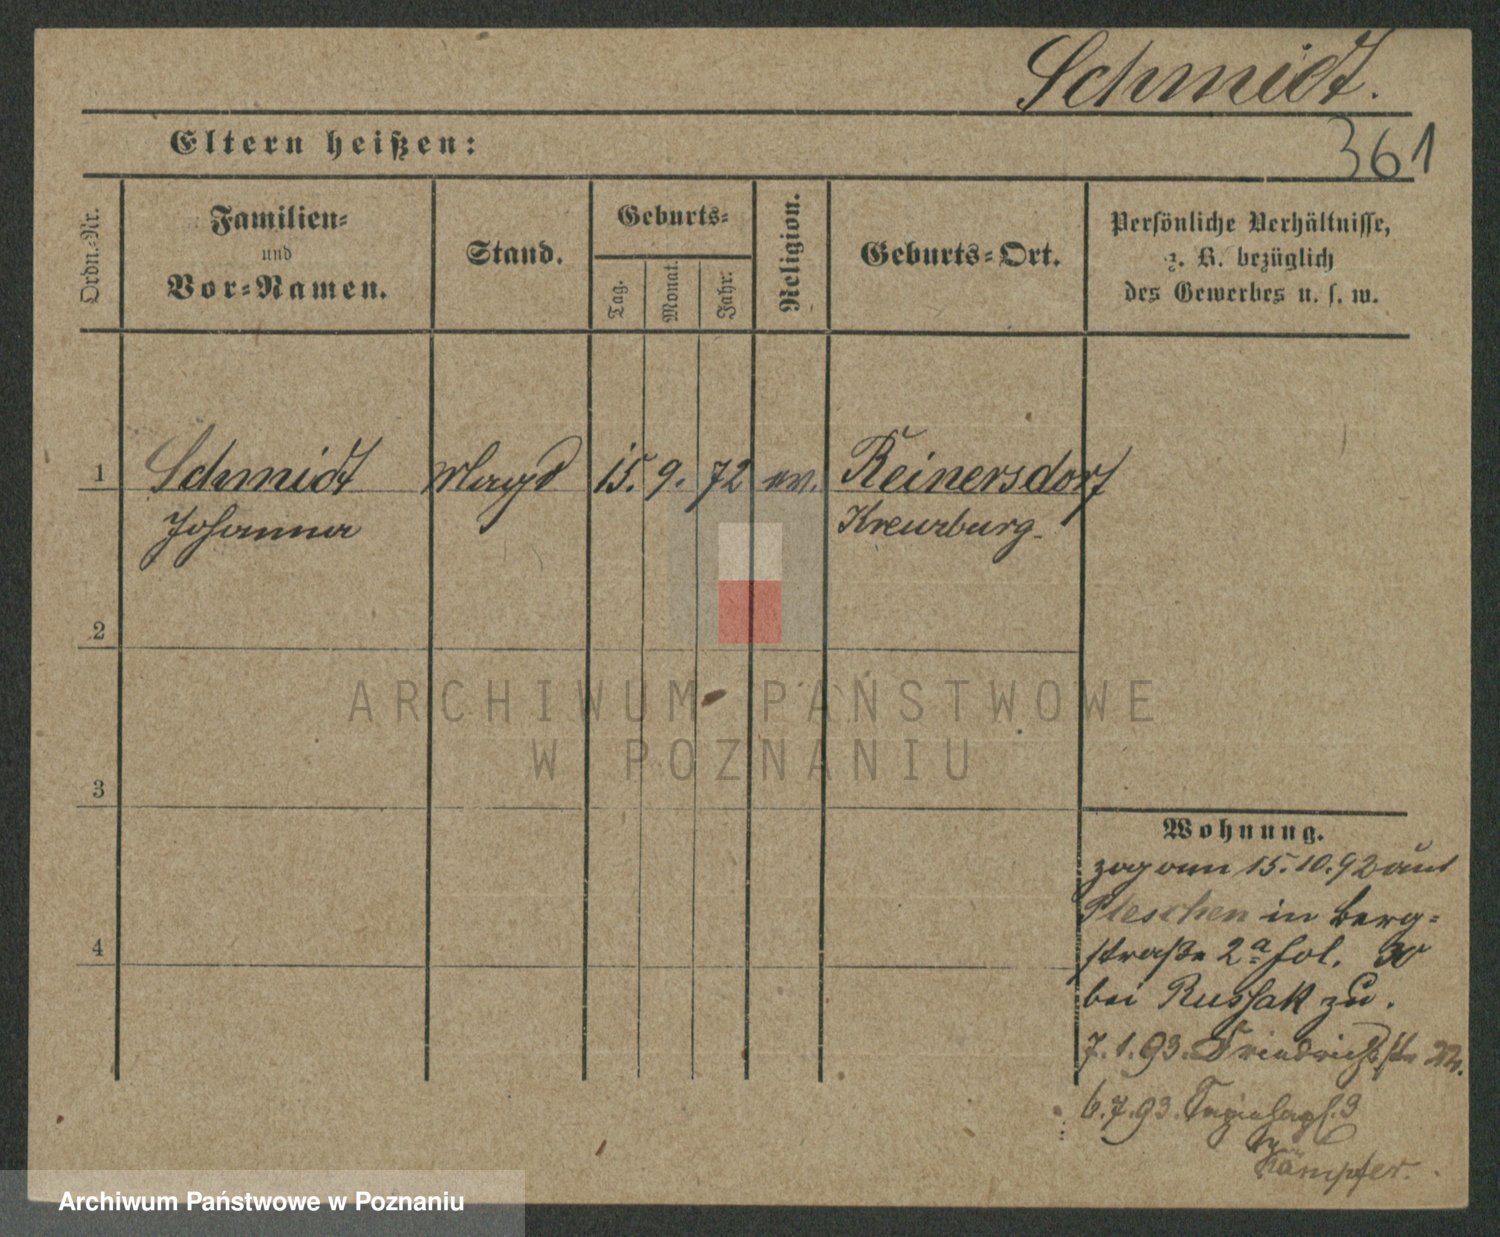 Schmidt.
361
Eltern heißen:
Ordn.-Nr.
Familien-
und
Vor-Namen.
Stand.
Geburts-
Tag.
Monat.
Jahr.
Religion.
Geburts-Ort.
Persönliche Verhältnisse,
z. B. bezüglich
des Gewerbes u. s. w.
1 Schmidt Magd 15. 9. 72 ev. Reinersdorf
Johanna Kreuzburg.
2
3
4
Wohnung.
zog am 15.10.92 aus
Pleschen in Berg-
straße 2a fol. 30
bei Russak zu.
7.1.93. Friedrichstr
6.7.93.
Kämpfer.
ARCHIWUM PAŃSTWOWE
W POZNANIU
Archiwum Państwowe w Poznaniu